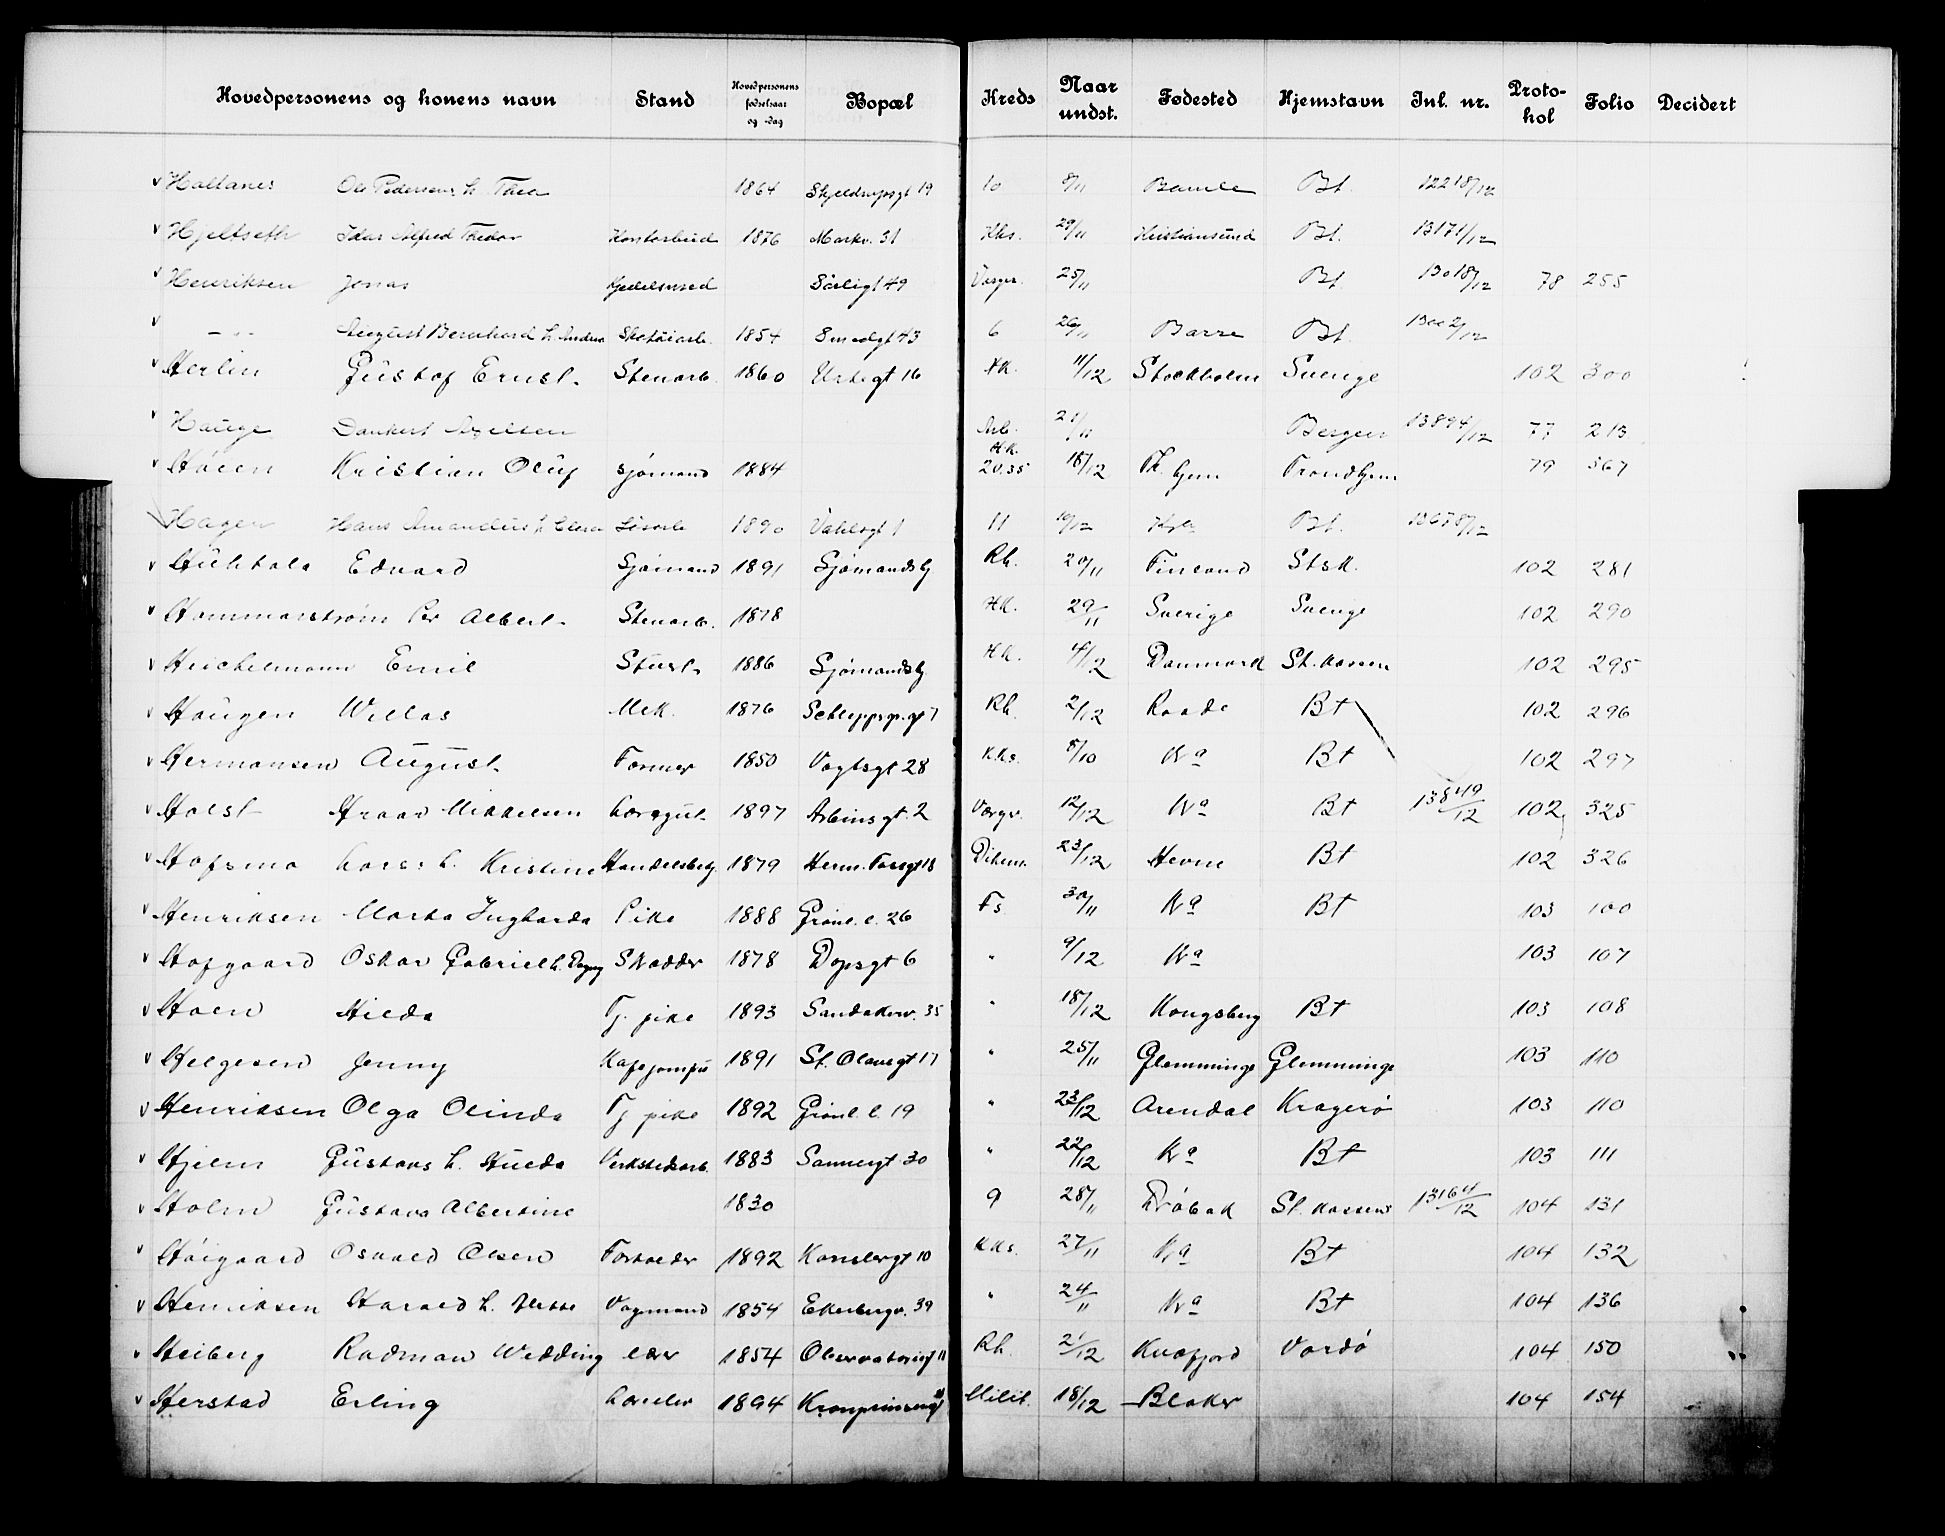 Hovedpersonens og konens navn Stand Hovedpersonens fødselsaar og -dag Bopæl Kreds Naar undst. Fødested Hjemstavn Jnl. nr. Protokol Folio Decidert
Hattanes Ole Pedersen h. Thea 1864 Skjeldrupsgt 19 10 8/11 Bamle Bt. 12218/12
Hjeltseth Idar Alfred Thedor Kontorbud 1876 Markv. 31 Kks. 29/11 Kristiansund Bt. 13171/12
Henriksen Jonas Kjedelsmed Sörligt 49 Værger. 25/11 Bt. 13018/12 78 255
— " — August Bernhard h. Andrea Skotöiarb. 1854 Smedgt 43 6 26/11 Borre Bt. 13002/12
Herlin Gustof Ernst. Stenarb. 1860 Urtegt 16 HK. 11/12 Stockholm Sverige 102 300
Hauge Dankert Axelsen Arb. 21/11 Bergen 13894/12 77 213
Høien Kristian Oluf sjømand 1884 HK. 20.35 18/12 Th.hjem Trondhjem 79 567
Hagen Hans Amandus h. Clara Løsarb 1890 Vahlsgt 1 11 10/12 Bt. 13678/12
Huhtala Edvard Sjømand 1891 Sjømandshj Rh. 20/11 Finland Stsk. 102 281
Hammarstrøm Per Albert. Stenarb. 1878 HK. 29/11 Sverige Sverige 102 290
Heichelmann Emil Stuert. 1886 Sjømandshj HK. 4/12 Danmark St. kassen 102 295
Haugen Willas Mek. 1876 Schleppgr.gt 7 Rh. 2/12 Raade Bt 102 296
Hermansen August. Former 1850 Vogtsgt 28 KKs. 8/10 Kra Bt 102 297
Holst Hroar Mikkelsen Læregut. 1897 Arbinsgt. 2 Værgr. 12/12 Kra Bt 13849/12 102 325
Hofsmo Lars: h. Kristine Handelsbetj. 1879 Herm. Fossgt 18 Dikem. 23/12 Hevne Bt 102 326
Henriksen Marta Ingharda Pike 1888 Grønl. l. 26 Fs 30/11 Kra Bt 103 100
Hofgaard Oskar Gabriel h. Dagny Skrædder 1878 Dopsgt 6 " 9/12 Kra 103 107
Hoen Hilda Tj. pike 1893 Sandakerv. 35 " 18/12 Kongsberg Bt 103 108
Helgesen Jenny Kafejomfru 1891 St. Olavsgt 17 " 25/11 Glemminge Glemminge 103 110
Henriksen Olga Olinda Tj pike 1892 Grønl. l. 19 " 23/12 Arendal Kragerø 103 110
Hjelm Gustavs h. Hulda Verkstedsarb. 1883 Sannergt 30 " 22/12 Kra Bt 103 111
Holm Gustava Albertine 1830 9 28/11 Drøbak St. kassen 13164/12 104 131
Høigaard Osvald Olsen Forholder 1892 Kanslergt 10 KKs. 27/11 Kra Bt 104 132
Henriksen Harald h. Vognmand 1854 Ekerbergv. 39 " 24/11 Kra Bt 104 136
Heiberg Rodman Wedding elev 1854 Observatoriegt 11 Rh. 2/12 Kvæfjord Vardö 104 150
Herstad Erling 1894 Kronprinsensgt Milit. 18/12 Blaker 104 154